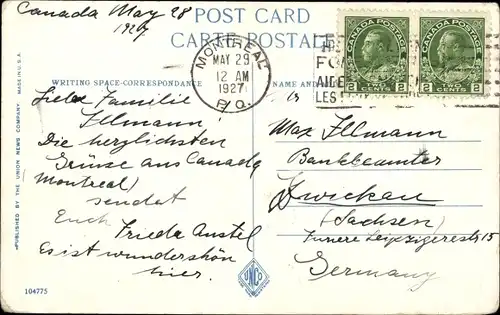 Canada May 28
1927
POST CARD
CARTE POSTALE
MONTREAL
MAY 29
12 AM
1927
P.Q.
CANADA POSTAGE
2 CENTS 2
CANADA POSTAGE
2 CENTS 2
WRITING SPACE-CORRESPONDANCE
NAME AND
Familie
Illmann!
Die herzlichsten
Grüsse aus Canada
Montreal)
sendet
Euch
Frieda Anstel
Es ist wunderschön
hier.
Max Illmann
Bankbeamter
Zwickau
(Sachsen)
Innere Leipzigerest 15
Germany
PUBLISHED BY THE UNION NEWS COMPANY
MADE IN U.S.A.
104775
UNCO